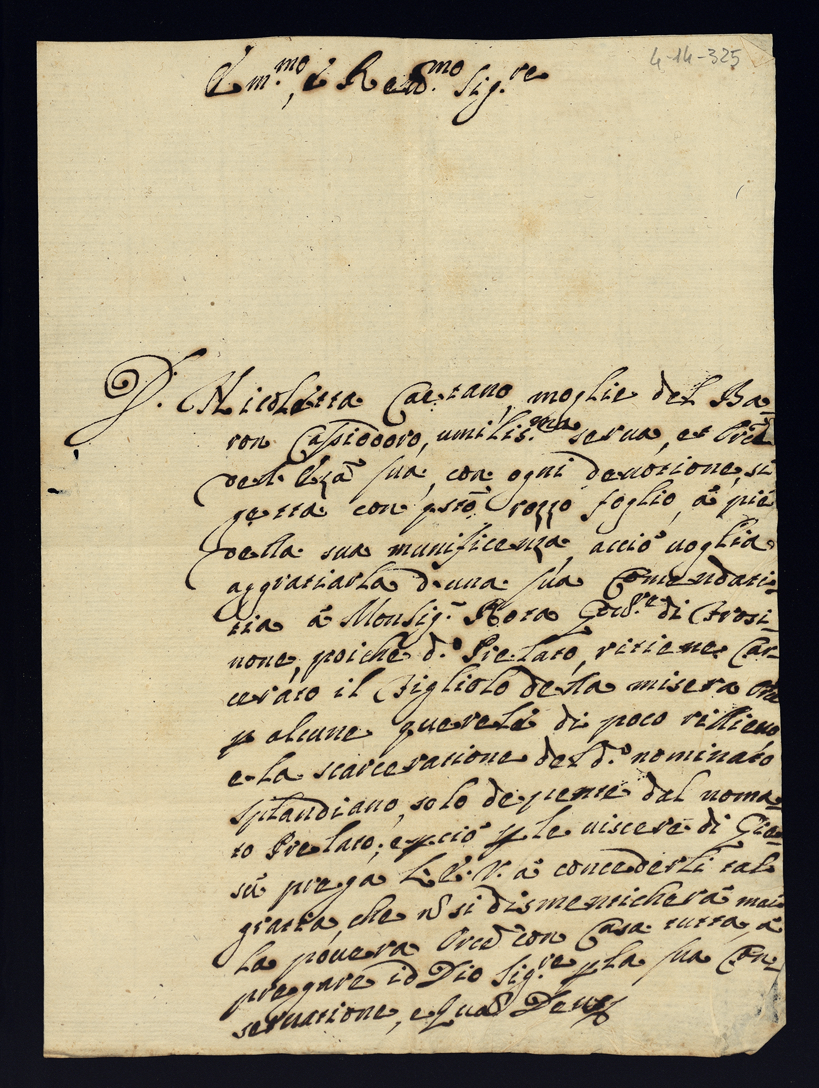 4-14-325
Em.mo, e Reud.mo Sig.re
D. Nicoletta Caetano, moglie del Ba-
ron Cassiodoro, umilis.ma serua, et Orce
dell'Eza sua, con ogni deuotione, si
getta con qsto rozzo foglio, à pie
della sua munificenza, acciò uoglia
aggratiarla d'una sua Comendati-
tia à Monsig.r Rota Gou.re di Frosi-
none, poiche d.o Prelato, ritiene Car-
cerato il Figliolo della misera Orce
p alcune querele di poco rillieuo
e la scarceratione del d.o nominato
solo depente dal noma-
to Prelato; e pciò p le uiscere di Gie-
sù prega L'E.V. à concederli tal
gratia, che n si dismenticherà mai
la pouera Orce con Casa tutta, à
pregare id Dio Sig.re p la sua Con-
seruatione, e Qua Deus